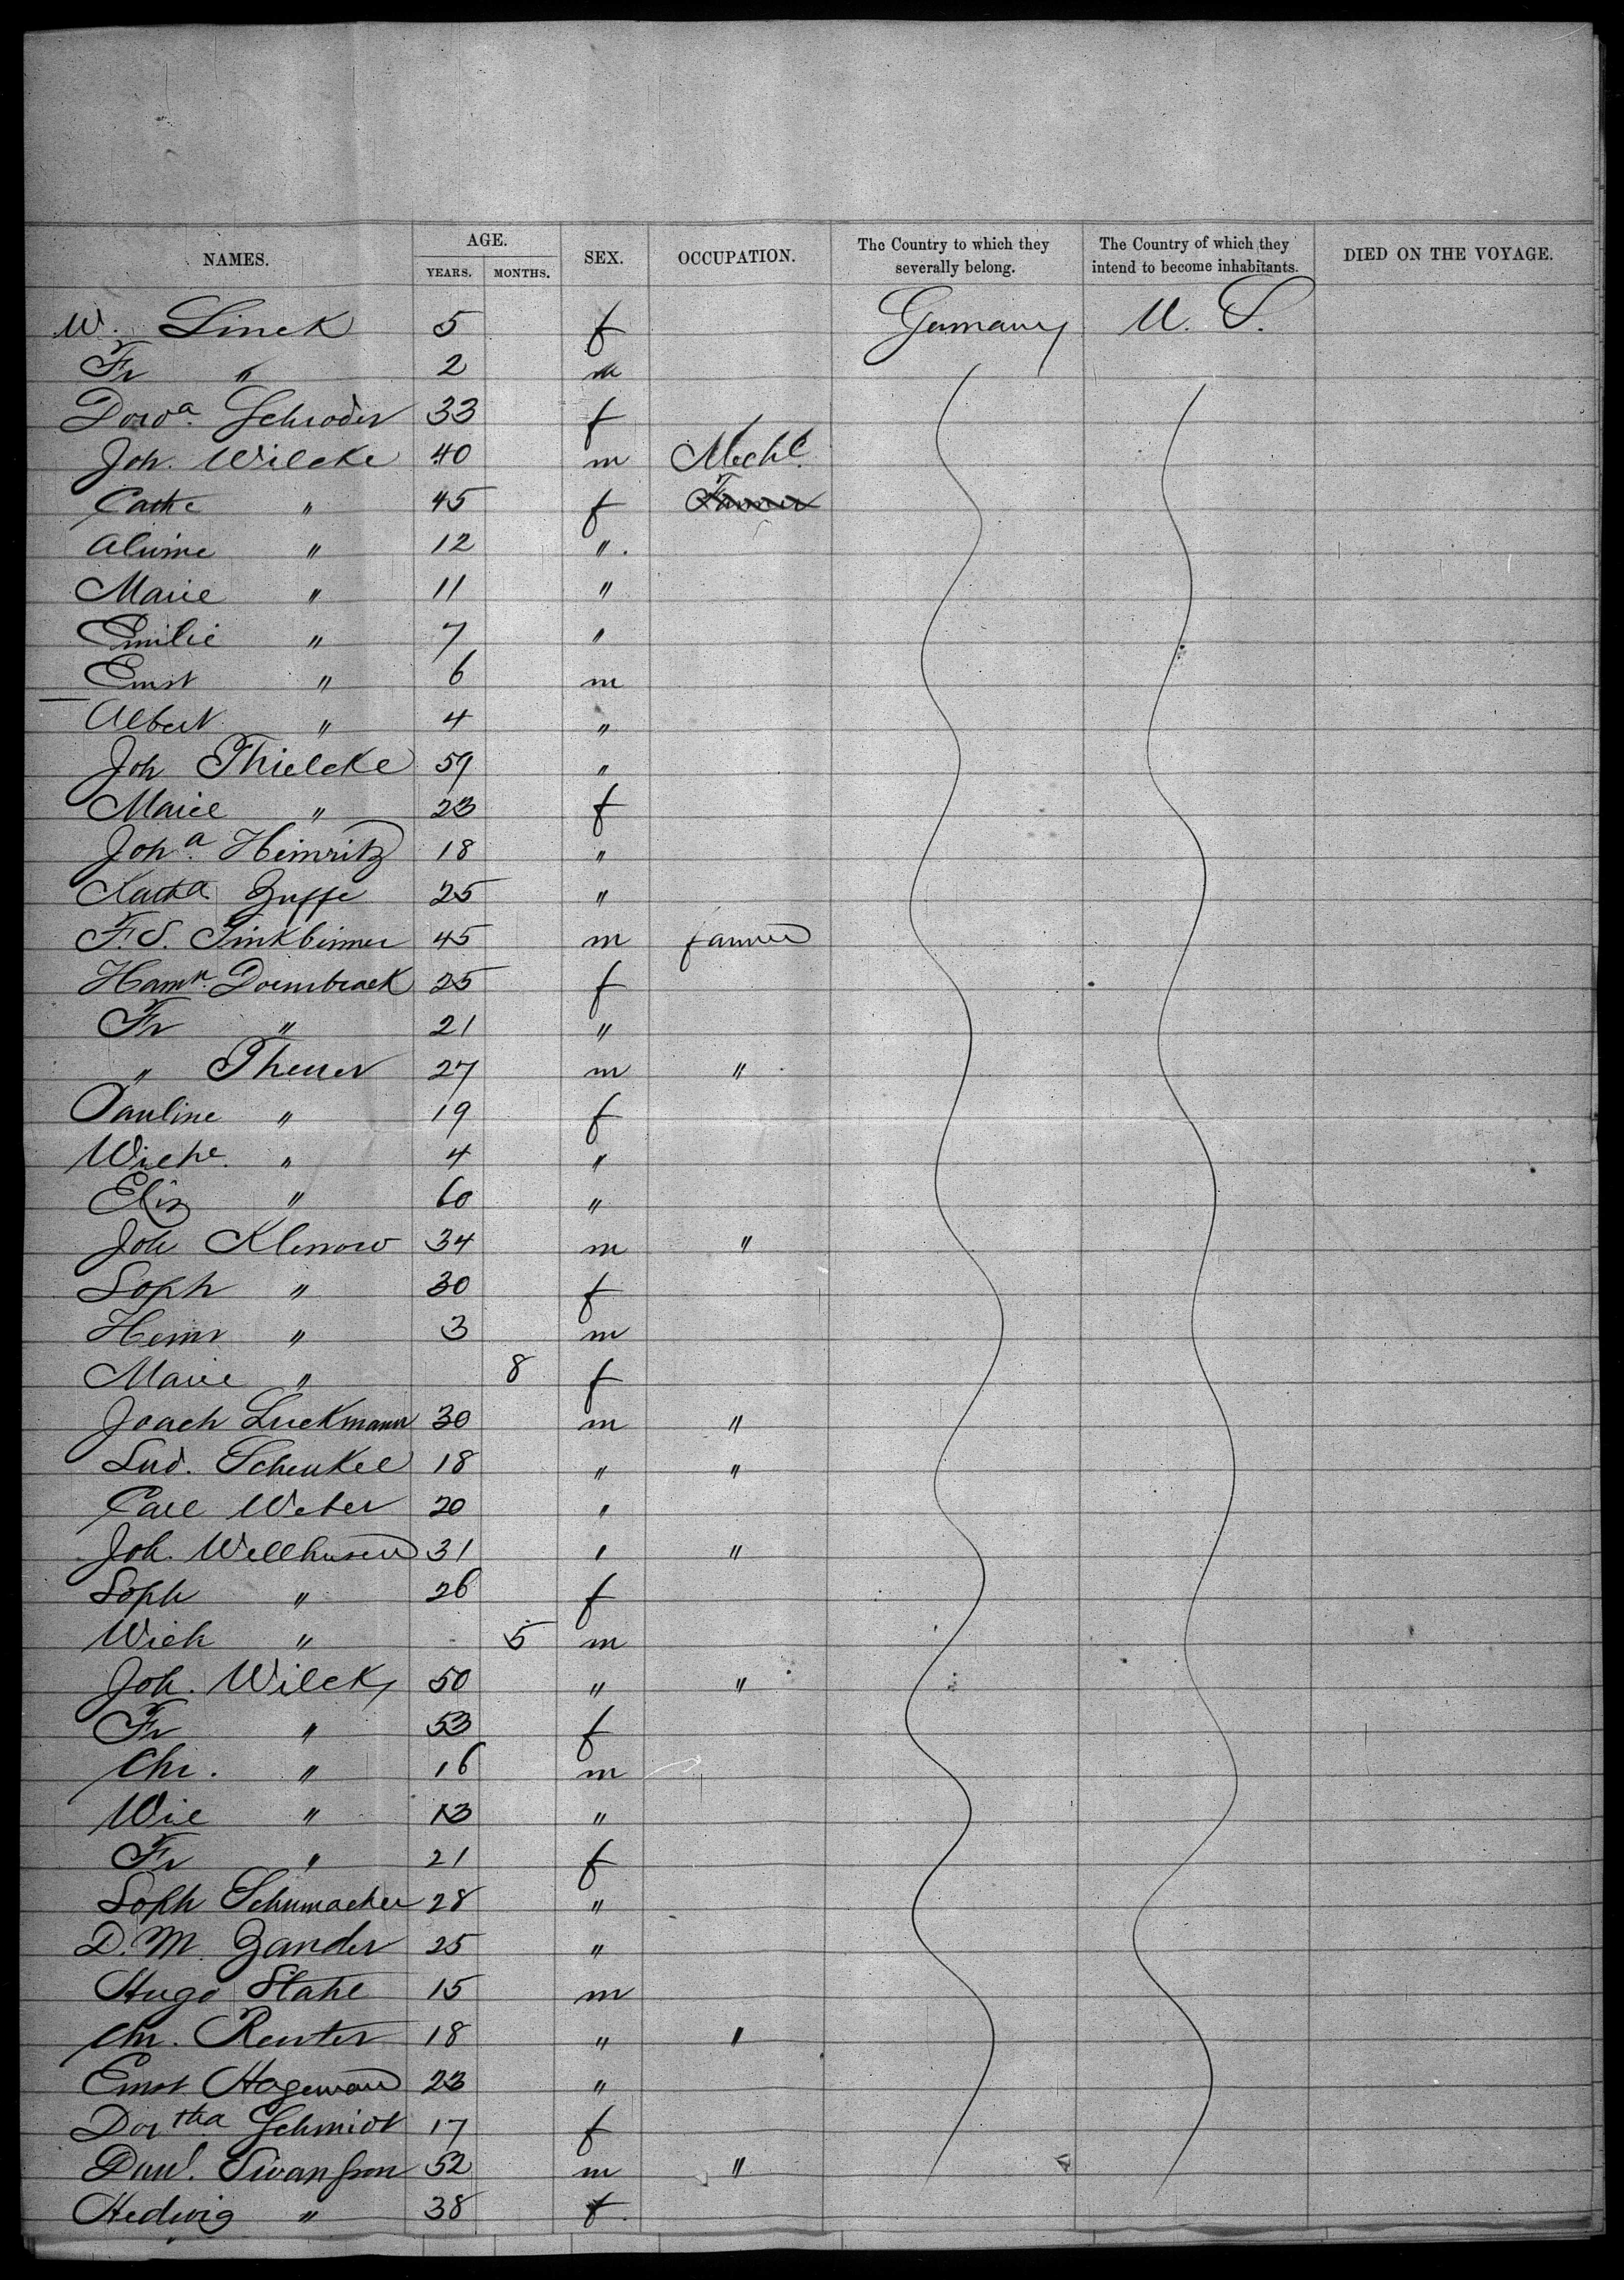 NAMES. AGE. YEARS. MONTHS. SEX. OCCUPATION. The Country to which they severally belong. The Country of which they intend to become inhabitants. DIED ON THE VOYAGE.
W. Linck 5 f Germany U. S.
Fr " 2 m
Doroa. Schroder 33 f
Joh. Wilcke 40 m Mechc.
Cathe " 45 f Farmer
Alwine " 12 ".
Marie " 11 "
Emilie " 7 "
Ernst " 6 m
Albert " 4 "
Joh Thielcke 59 "
Marie " 23 f
Joha. Heinritz 18 "
Katha Zuffe 25 "
F. S. 45 m farmer
25 f
Fr " 21 "
" Theuer 27 m "
Pauline " 19 f
Wilhe. " 4 "
Elis " 60 "
Joh Klenow 34 m "
Soph " 30 f
Heinr " 3 m
Marie " 8 f
Joach Luckmann 30 m "
Lud. Schenkel 18 " "
Carl Weber 20 "
Joh. Wellhusen 31 " "
Soph " 26 f
Wilh " 5 m
Joh. Wilck 50 " "
Fr " 53 f
Chr. " 16 m
Wil " 13 "
Fr " 21 f
Soph Schumacher 28 "
D. M. Zander 25 "
Hugo Stahl 15 m
Chr. Reuter 18 " "
Ernst Hagemann 23 "
Dortha Schmidt 17 f
Danl. Swanson 52 m "
Hedwig " 38 f.